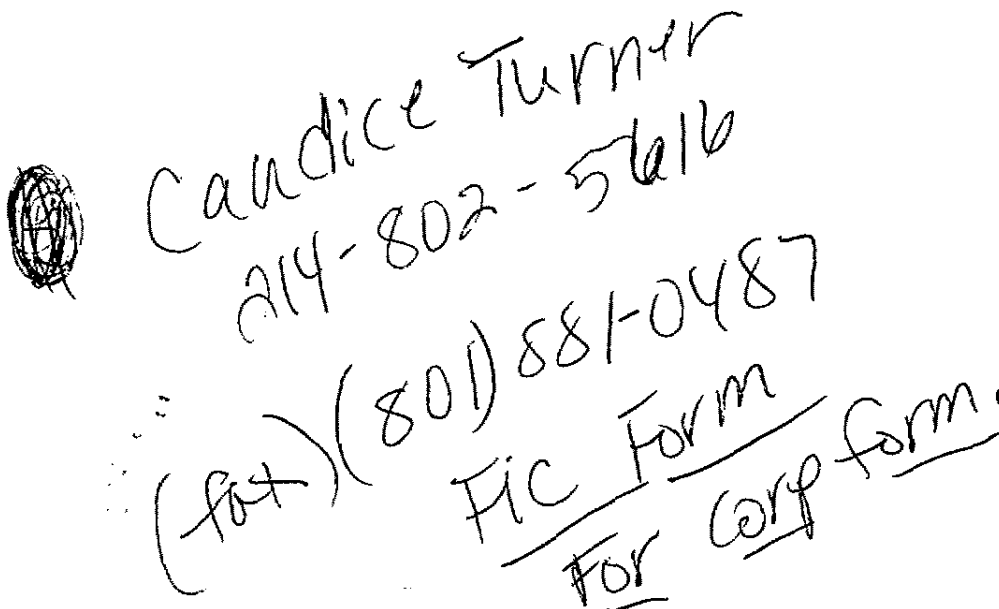 Candice Turner
214-802-5616
(fax) (801) 881-0487
Fic Form
For Corp form.